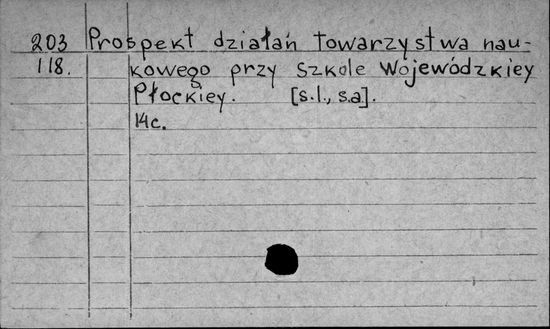 203 Prospekt działań towarzystwa nau-
118. kowego przy szkole Wojewódzkiey
Płockiey. [s.l., s.a].
14c.